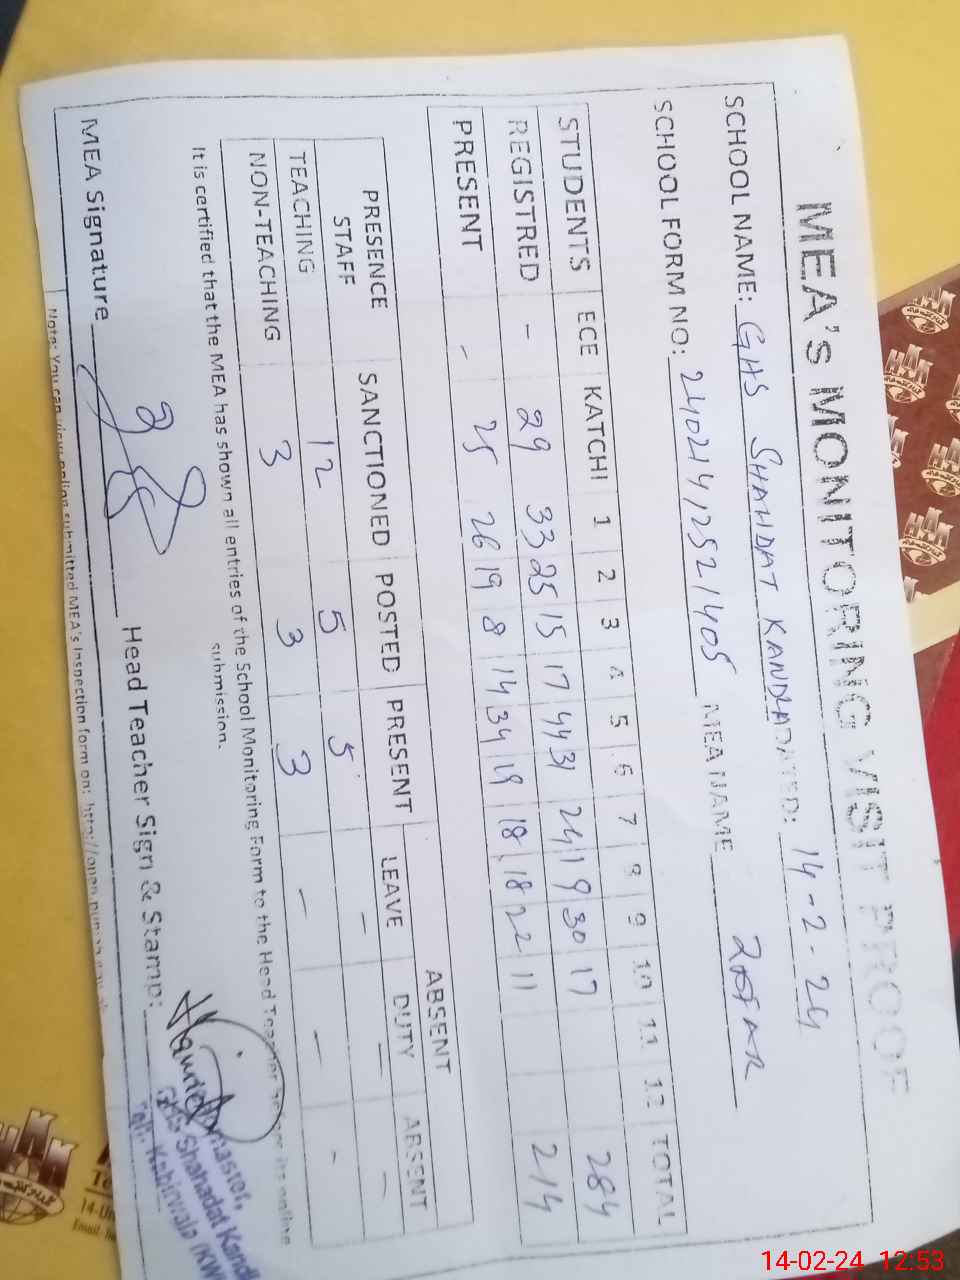 MEA's MONITORING VISIT PROOF
SCHOOL NAME: GHS SHAHDAT KANDLA DATED: 14-2-24
SCHOOL FORM NO: 24021412521405 MEA NAME ZAFAR
STUDENTS ECE KATCHI 1 2 3 4 5 6 7 8 9 10 11 12 TOTAL
REGISTRED - 29 33 25 15 17 44 31 24 19 30 17 284
PRESENT - 25 26 19 8 14 34 19 18 18 22 11 214
PRESENCE STAFF SANCTIONED POSTED PRESENT ABSENT
LEAVE DUTY ABSENT
TEACHING 12 5 5 - - -
NON-TEACHING 3 3 3 - - -
It is certified that the MEA has shown all entries of the School Monitoring Form to the Head Teacher before its online
submission.
MEA Signature Head Teacher Sign & Stamp:
Headmaster,
GHS Shahadat Kandla
Teh: Kabirwala (KW
Note: You can view online submitted MEA's Inspection form on: http://open.punjab.gov.pk
14-02-24 12:53